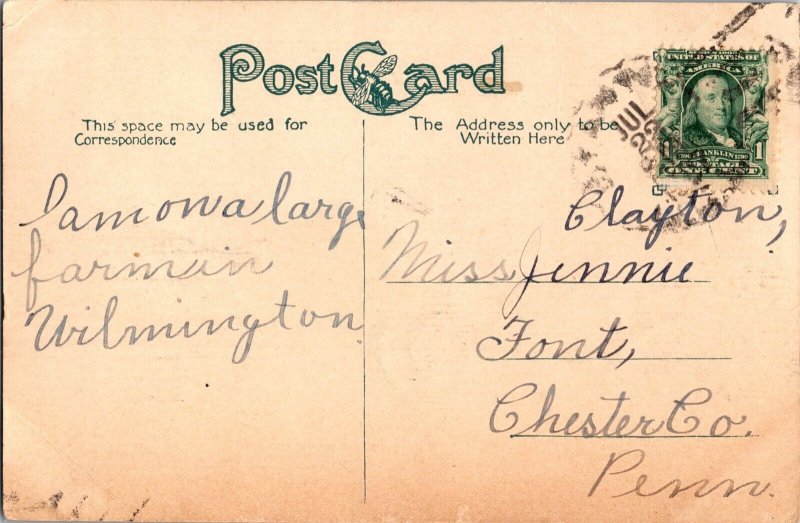 Post Card
This space may be used for
Correspondence
The Address only to be
Written Here
JUL
UNITED STATES OF
AMERICA
FRANKLIN
1 1
POSTAGE
ONE CENT
I am on a large
farm in
Wilmington
Clayton,
Miss Jennie
Font,
Chester Co.
Penn.